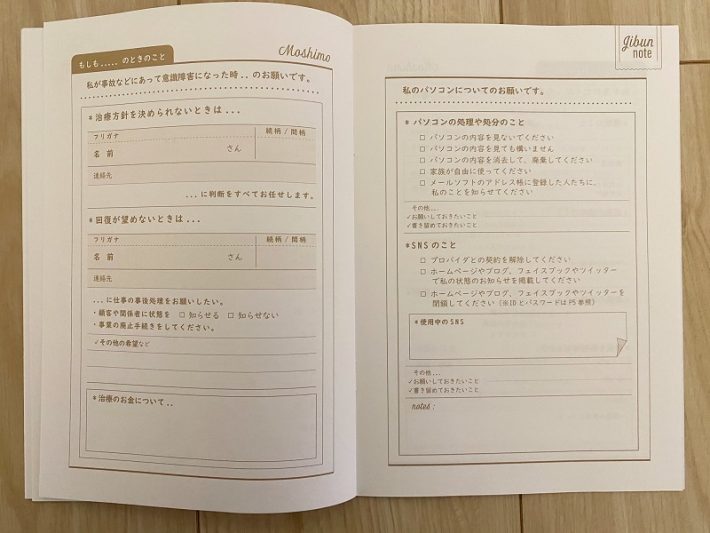 もしも..... のときのこと
Moshimo
私が事故などにあって意識障害になった時.. のお願いです。
*治療方針を決められないときは...
フリガナ
続柄 / 間柄
名 前
さん
連絡先
...に判断をすべてお任せします。
*回復が望めないときは...
フリガナ
続柄 / 間柄
名 前
さん
連絡先
...に仕事の事後処理をお願いしたい。
・顧客や関係者に状態を □ 知らせる □ 知らせない
・事業の廃止手続きをしてください。
✓その他の希望など
*治療のお金について..
Jibun
note
私のパソコンについてのお願いです。
* パソコンの処理や処分のこと
□ パソコンの内容を見ないでください
□ パソコンの内容を見ても構いません
□ パソコンの内容を消去して、廃棄してください
□ 家族が自由に使ってください
□ メールソフトのアドレス帳に登録した人たちに、
私のことを知らせてください
その他...
✓お願いしておきたいこと
✓書き留めておきたいこと
*SNSのこと
□ プロバイダとの契約を解除してください
□ ホームページやブログ、フェイスブックやツイッター
で私の状態のお知らせを掲載してください
□ ホームページやブログ、フェイスブックやツイッターを
閉鎖してください（※IDとパスワードはP5参照）
*使用中のSNS
その他...
✓お願いしておきたいこと
✓書き留めておきたいこと
notes :